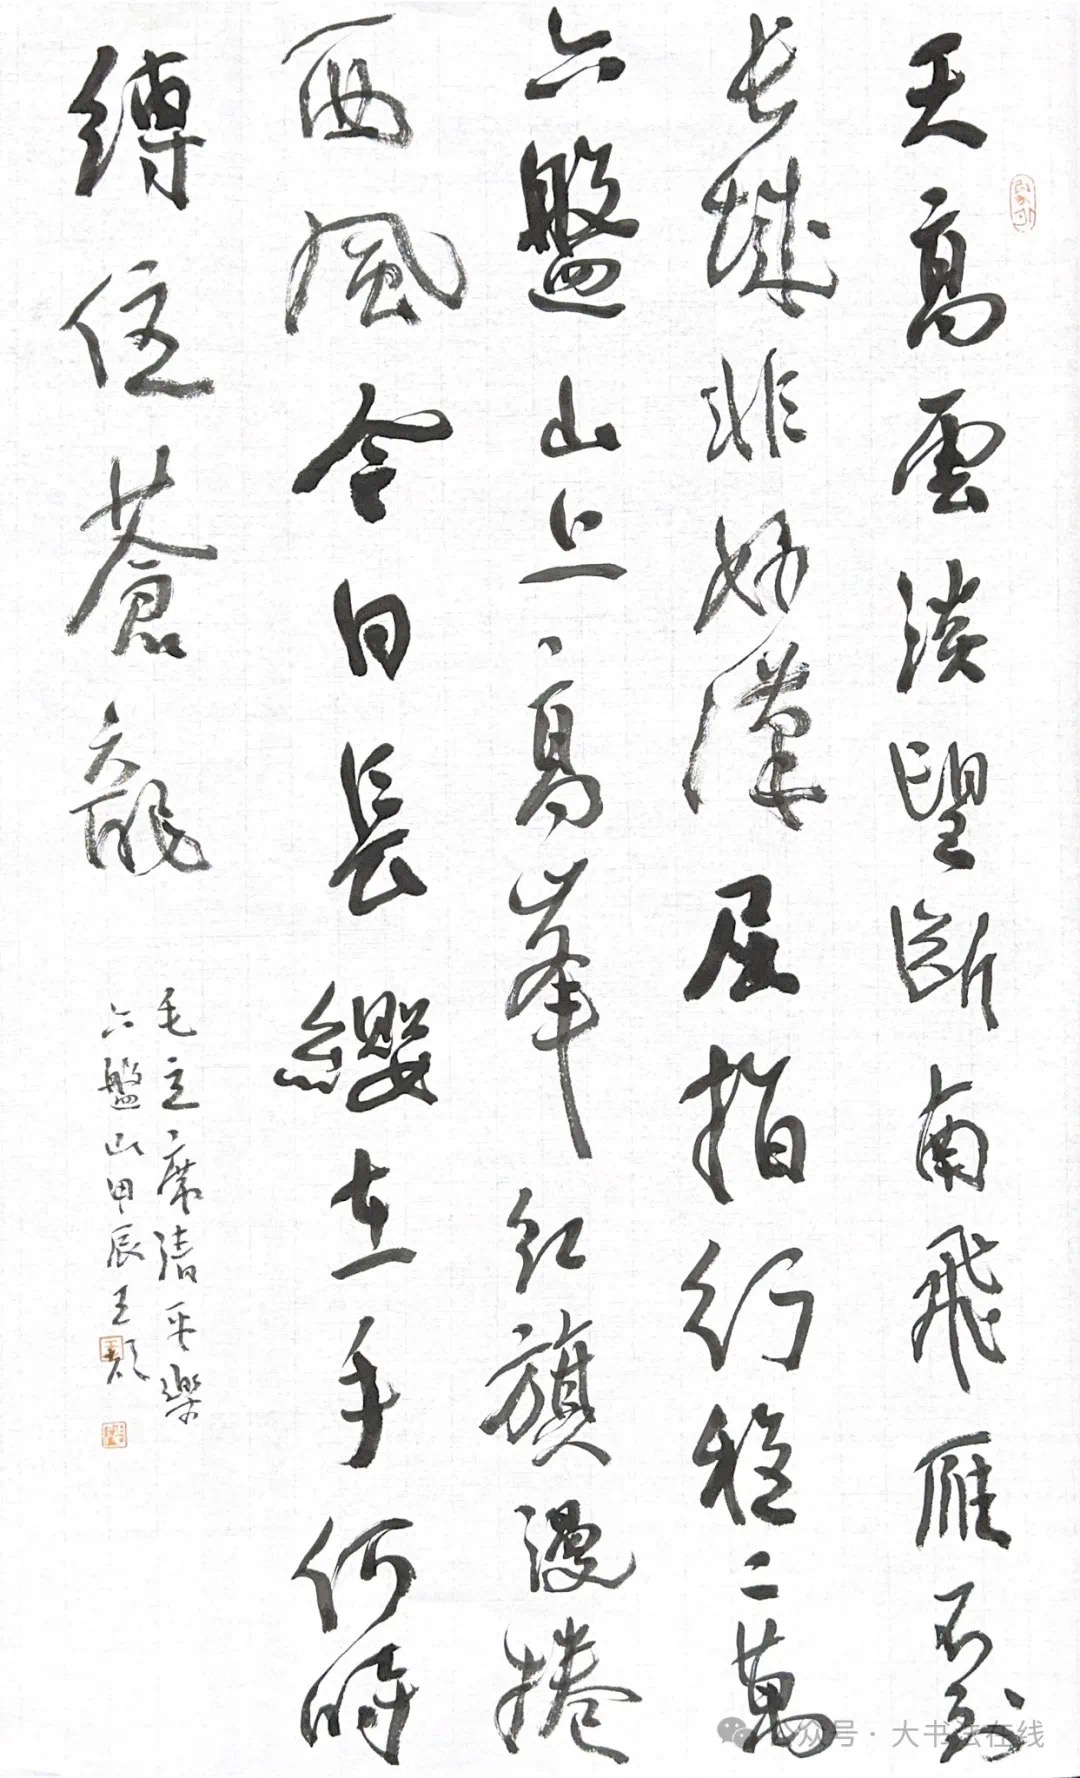 天高雲淡望斷南飛雁不到
長城非好漢屈指行程二萬
六盤山上高峯紅旗漫捲
西風今日長纓在手何時
縛住蒼龍
毛主席清平樂
六盤山甲辰王
公众号 · 大书法在线